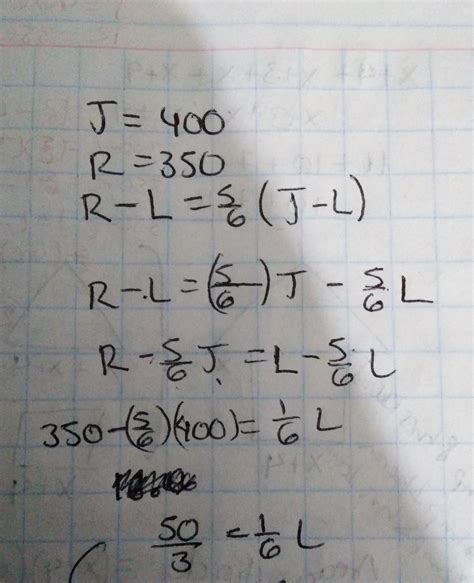 J = 400
R = 350
R - L = 5/6 (J - L)
R - L = (5/6) J - 5/6 L
R - 5/6 J = L - 5/6 L
350 - (5/6)(400) = 1/6 L
50/3 = 1/6 L